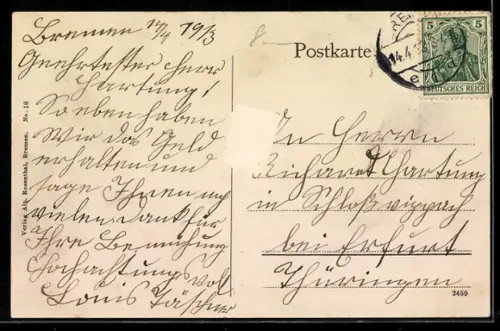 Bremen 14/4 1913
Geehrtester Herr
Hartung!
Soeben haben
Wir das Geld
erhalten und
sage Ihnen noch
vielen Dank für
Ihre Bemühung
Hochachtungsvol
Louis Täschner
Postkarte
5 5
DEUTSCHES REICH
14.4.13
An Herrn
Richard Hartung
in Schloß vippach
bei Erfurt
Thüringen
2459
Verlag Alb. Rosenthal, Bremen. No. 18